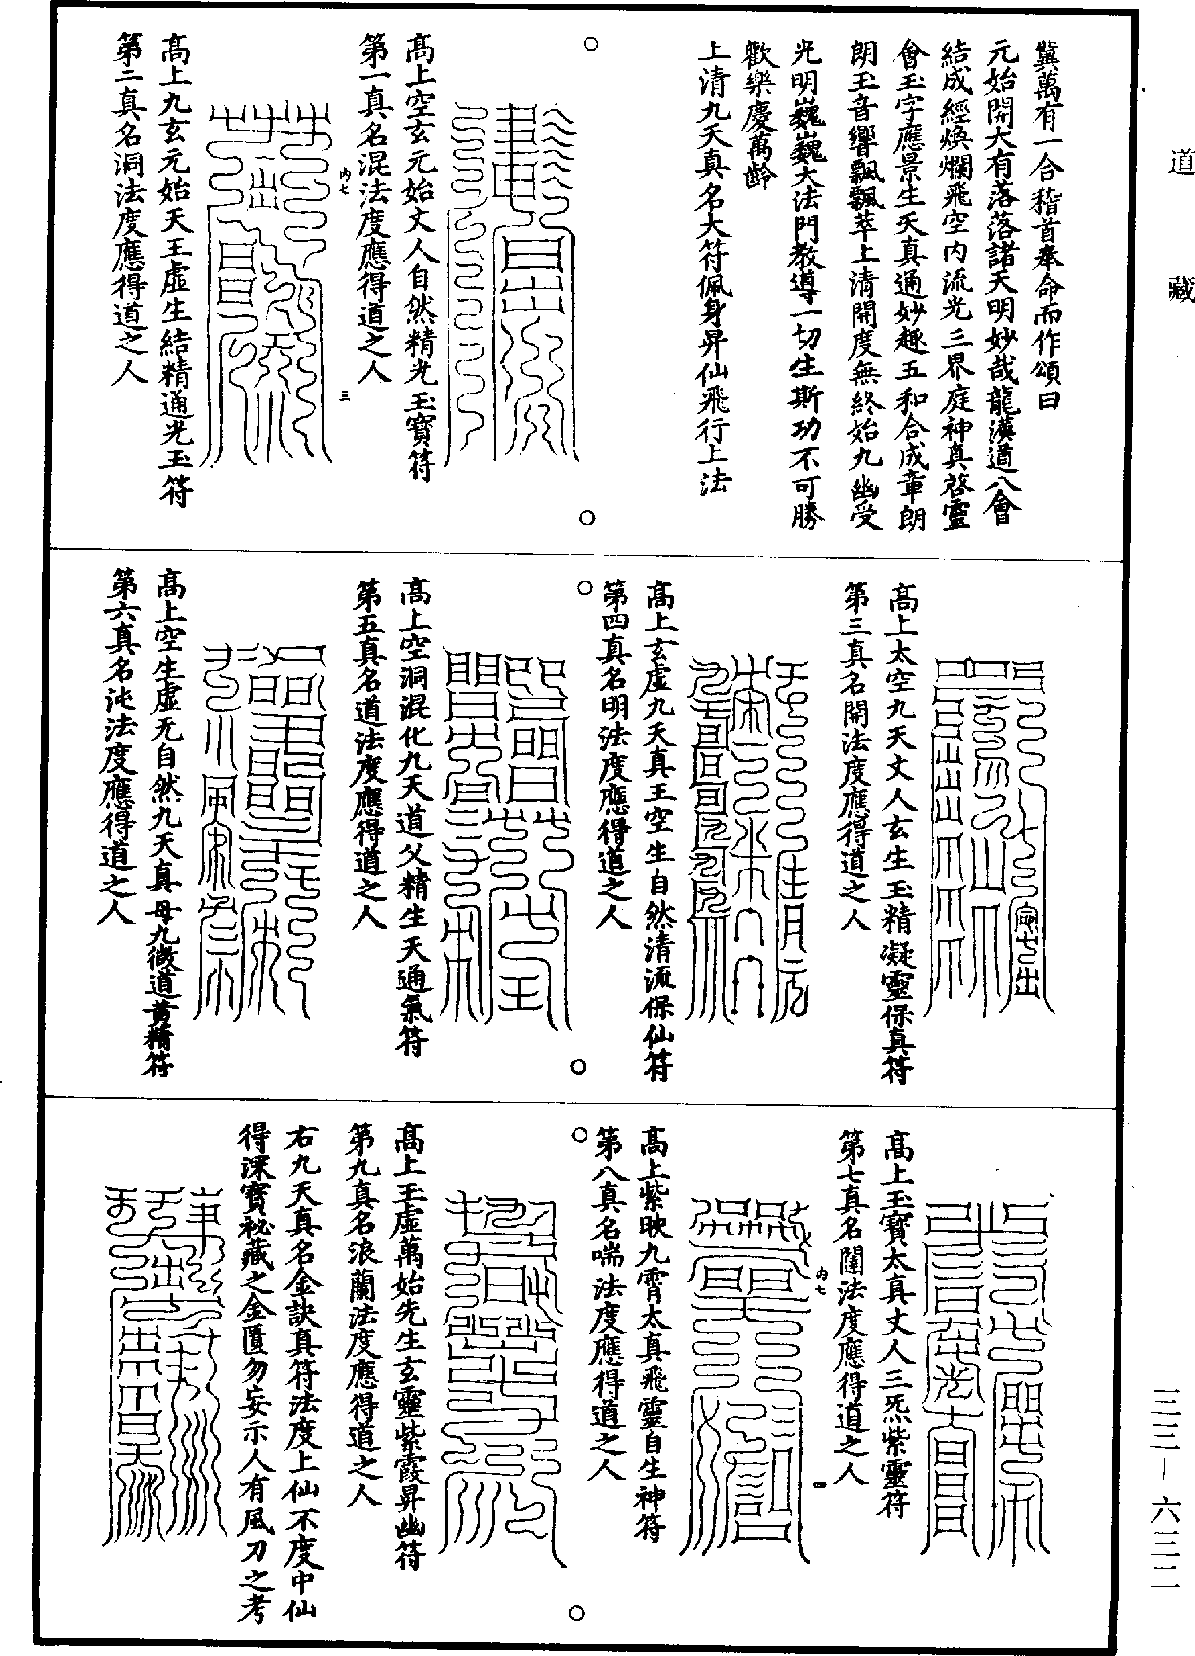 道藏
冀萬有一合稽首奉命而作頌曰
元始開大有落落諸天明妙哉龍漢道八會
結成經煥爛飛空內流光三界庭神真啓靈
會玉字應景生天真通妙趣五和合成章朗
朗玉音響飄飄萃上清開度無終始九幽受
光明巍巍大法門教導一切生斯功不可勝
歡樂慶萬齡
上清九天真名大符佩身昇仙飛行上法
高上空玄元始丈人自然精光玉寶符
第一真名混法度應得道之人
內七
三
高上九玄元始天王虛生結精通光玉符
第二真名洞法度應得道之人
高上太空九天丈人玄生玉精凝靈保真符
第三真名開法度應得道之人
高上玄虛九天真王空生自然清流保仙符
第四真名明法度應得道之人
高上空洞混化九天道父精生天通氣符
第五真名道法度應得道之人
高上空生虛无自然九天真母九微道黃精符
第六真名沌法度應得道之人
高上玉寶太真丈人三炁紫靈符
第七真名闥法度應得道之人
內七
四
高上紫映九霄太真飛靈自生神符
第八真名喘法度應得道之人
高上玉虛萬始先生玄靈紫霞昇幽符
第九真名浪蘭法度應得道之人
右九天真名金訣真符法度上仙不度中仙
得深寶祕藏之金匱勿妄示人有風刀之考
三三-六三二